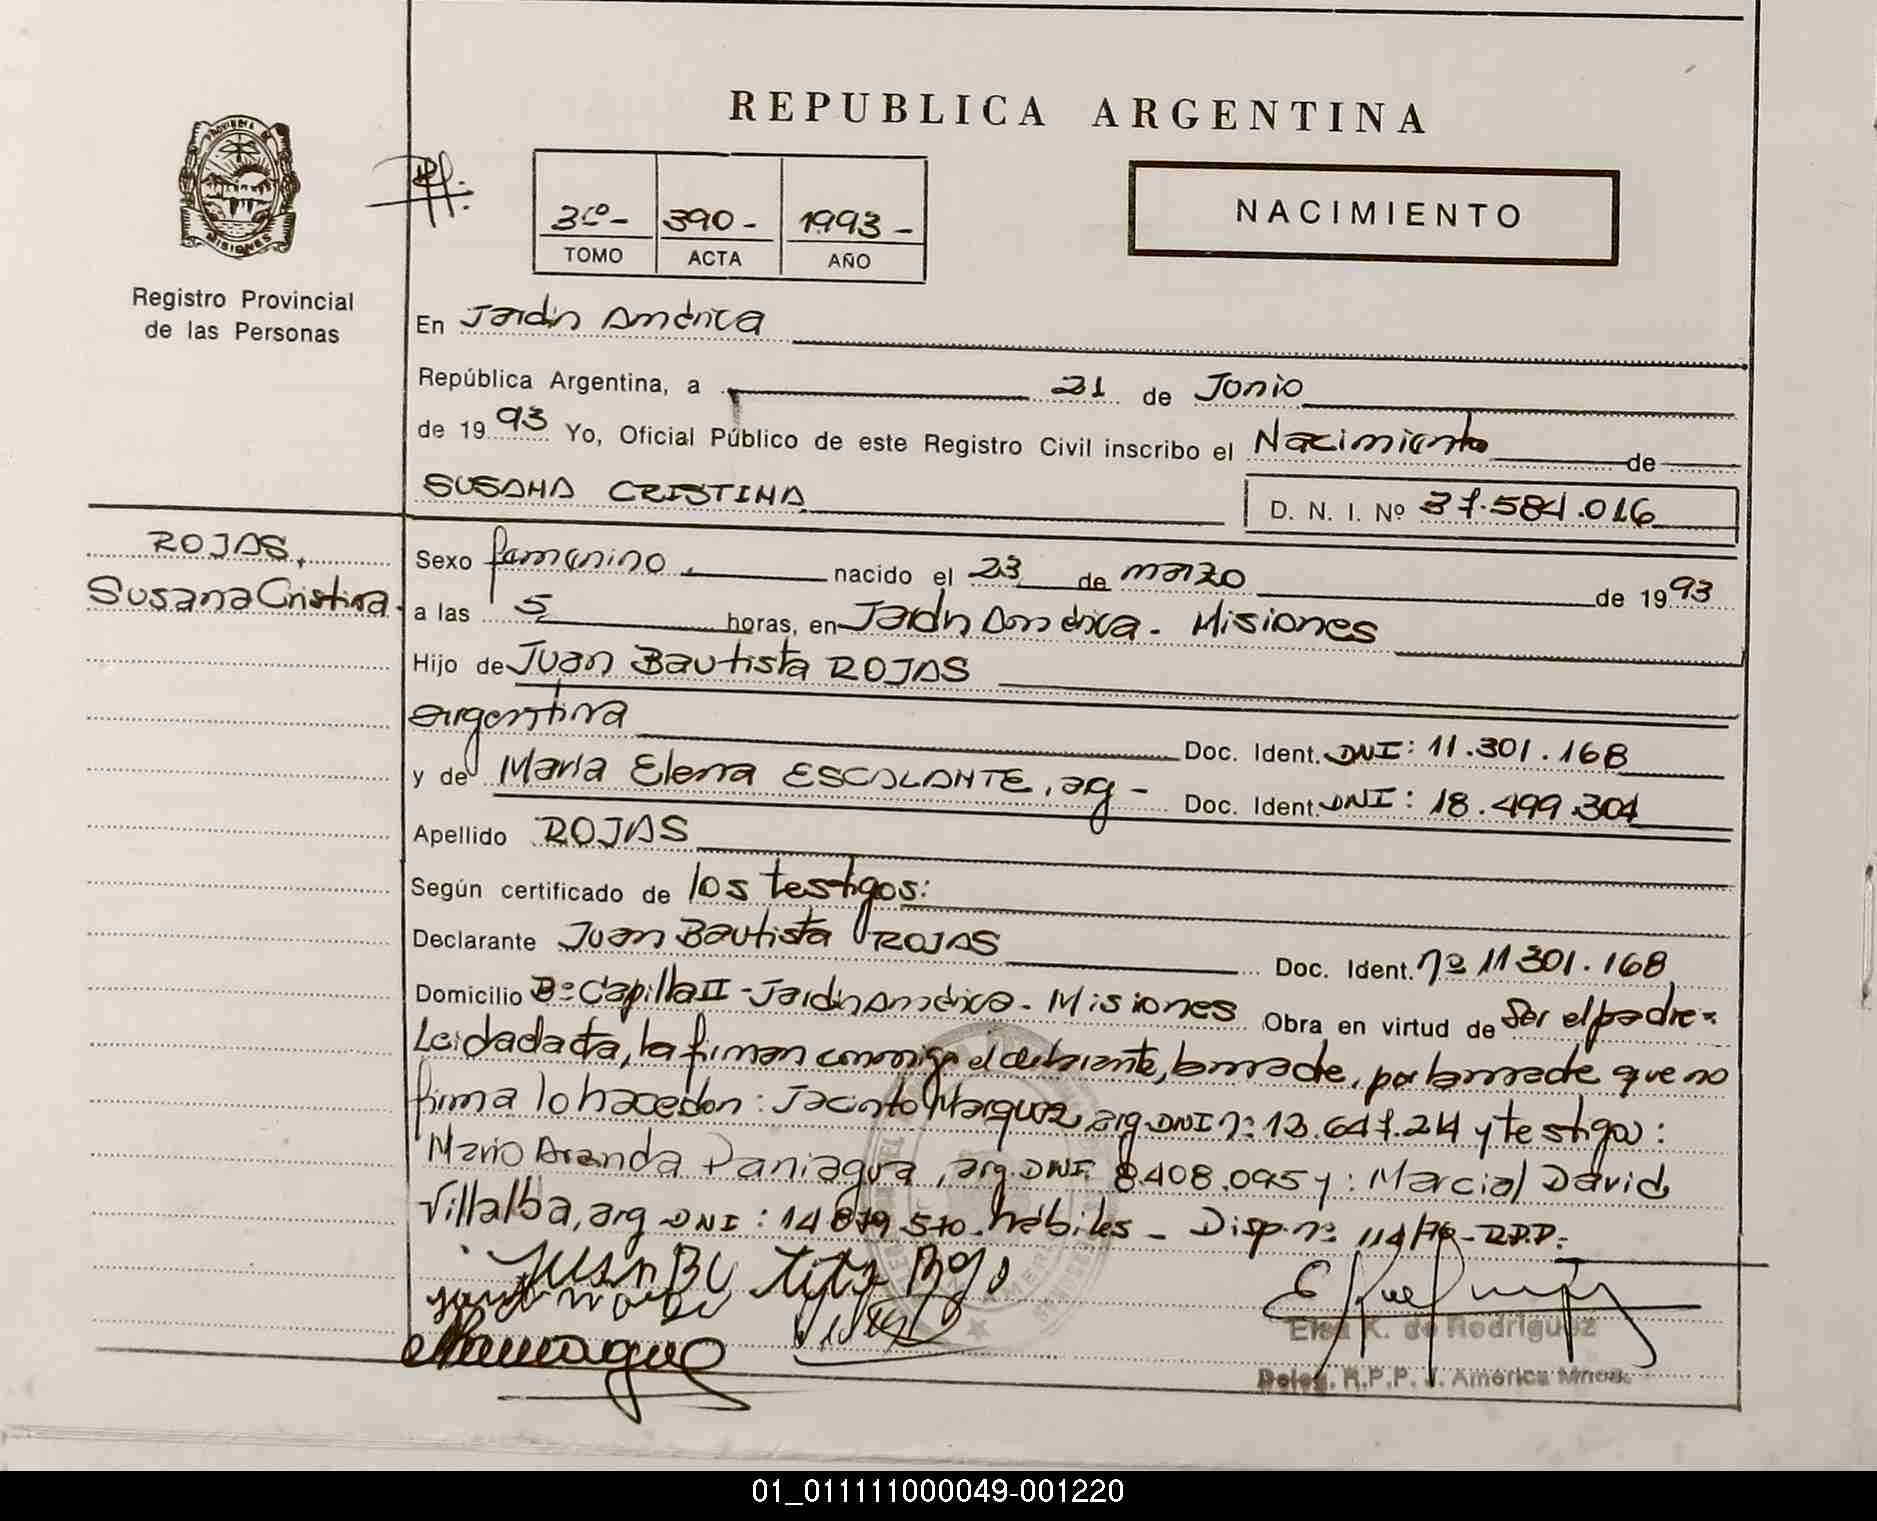 REPUBLICA ARGENTINA
PROVINCIA DE
MISIONES
Registro Provincial
de las Personas
3ro- 390- 1993-
TOMO ACTA AÑO
NACIMIENTO
En Jardín América
República Argentina, a 21 de Junio
de 1993 Yo, Oficial Público de este Registro Civil inscribo el Nacimiento de
SUSANA CRISTINA
D. N. I. Nº 37.584.016
ROJAS,
Susana Cristina.
Sexo femenino, nacido el 23 de marzo de 1993
a las 5 horas, en Jardín América - Misiones
Hijo de Juan Bautista ROJAS
argentina Doc. Ident. DNI: 11.301.168
y de María Elena ESCALANTE, arg - Doc. Ident. DNI: 18.499.304
Apellido ROJAS
Según certificado de los testigos:
Declarante Juan Bautista ROJAS Doc. Ident. nº 11301.168
Domicilio Bº Capilla II - Jardín América - Misiones Obra en virtud de ser el padre=
Leida da acta, la firman conmigo el declarante, la madre, por la madre que no
firma lo hace don: Jacinto Marquez, arg DNI nº 13.647.214 y testigos:
Mario Aranda Paniagua, arg. DNI 8.408.095 y: Marcial David
Villalba, arg DNI: 14.879.570. hábiles - Disp. nº 114/76-RPP.
Elsa K. de Rodriguez
Deleg. R.P.P. J. América Mnes.
01_011111000049-001220